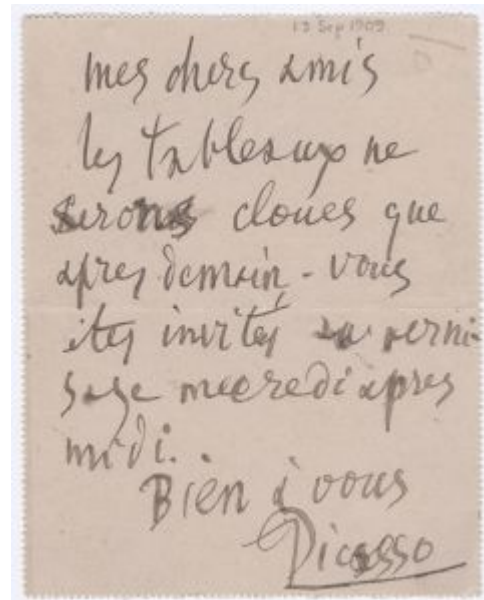 13 Sep 1909
mes chers amis
les tableaux ne
serons cloues que
apres demain - vous
etes invités au verni-
sage mecredi apres
midi..
Bien à vous
Picasso